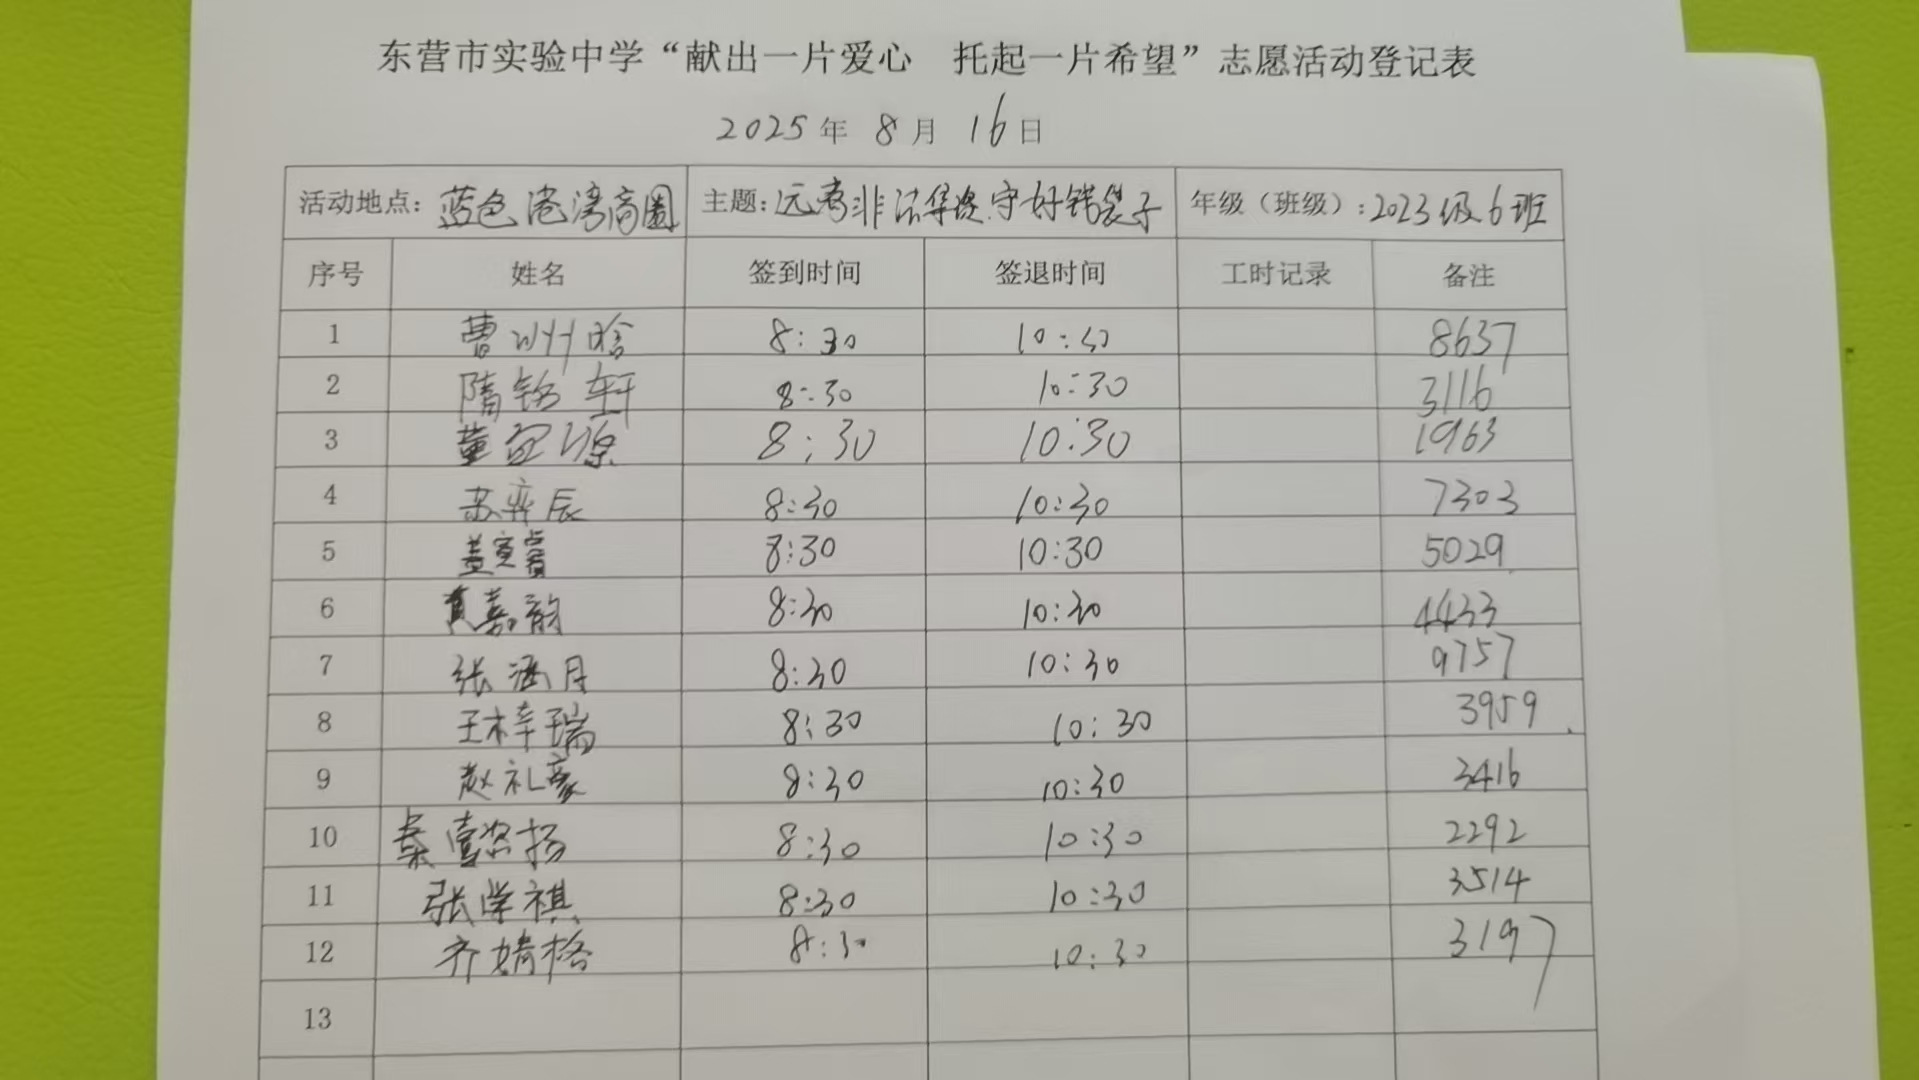 东营市实验中学“献出一片爱心 托起一片希望”志愿活动登记表
2025年 8月 16日
活动地点：蓝色港湾商圈 主题：远离非法集资守好钱袋子 年级（班级）：2023级6班
序号 姓名 签到时间 签退时间 工时记录 备注
1 曹州晗 8:30 10:30 8637
2 隋铭轩 8:30 10:30 3116
3 董宜源 8:30 10:30 1963
4 苏弈辰 8:30 10:30 7303
5 盖 8:30 10:30 5029
6 嘉韵 8:30 10:30 4433
7 张涵月 8:30 10:30 9757
8 王梓瑞 8:30 10:30 3959
9 赵礼豪 8:30 10:30 3416
10 秦 扬 8:30 10:30 2292
11 张学祺 8:30 10:30 3514
12 齐婧格 8:30 10:30 3197
13